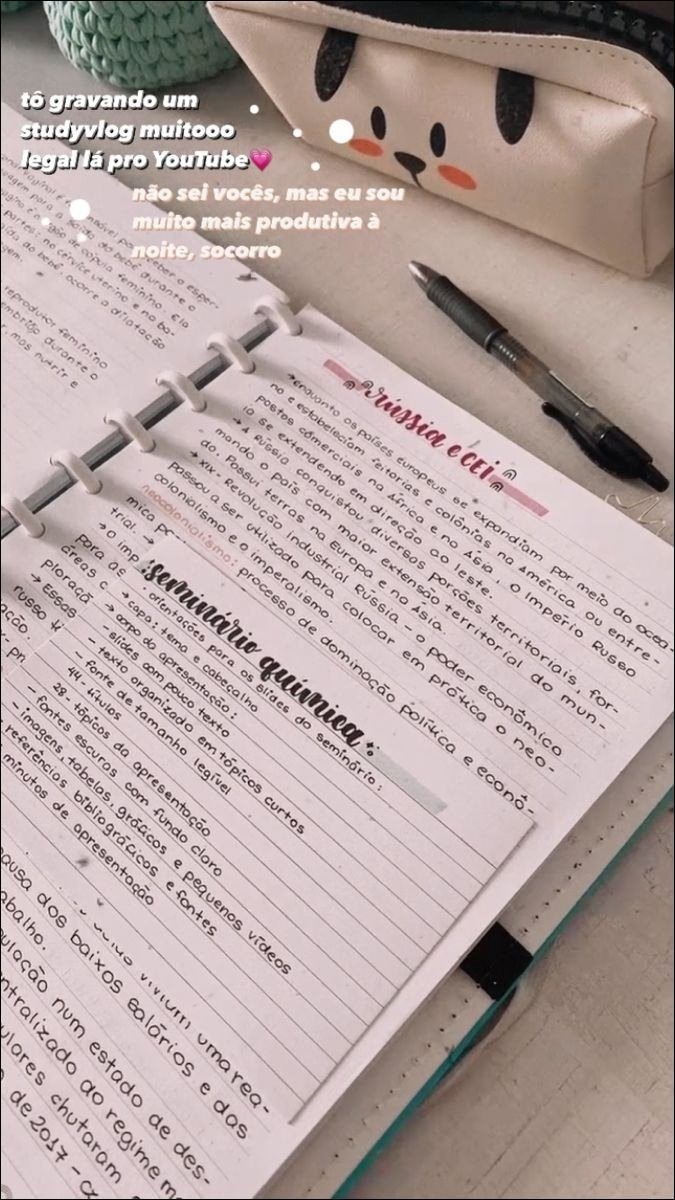 tô gravando um
studyvlog muitooo
legal lá pro YouTube💗
não sei vocês, mas eu sou
muito mais produtiva à
noite, socorro
reprodutor feminino
durante o
mas nutrir e
Rússia e CEI
→ enquanto os países europeus se expandiam por meio do ocea-
no e estabeleciam feitorias e colônias na América ou entre-
postos comerciais na África e na Ásia, o Império Russo
ia se extendendo em direção ao leste.
→ A Rússia conquistou diversas porções territoriais, for-
mando o país com maior extensão territorial do mun-
do. Possui terras na Europa e na Ásia.
→ XIX - Revolução Industrial Rússia - o poder econômico
passou a ser utilizado para colocar em prática o neo-
colonialismo e o imperalismo.
neocolonialismo: processo de dominação política e econô-
mica
trial. →
→ O imp
para as
áreas c
ploração
→ Essas
russo
seminário química:
• orientações para os slides do seminário:
→ capa: tema e cabeçalho
→ corpo da apresentação:
- slides com pouco texto
- texto organizado em tópicos curtos
- fonte de tamanho legível
44 - títulos
28 - tópicos da apresentação
- fontes escuras com fundo claro
- imagens, tabelas, gráficos e pequenos vídeos
referências bibliográficas e fontes
minutos de apresentação
viviam uma rea-
ausa dos baixos salários e das
abalho.
ulação num estado de des-
ntralizado do regime mo
ulares chutaram
de 2017 - a